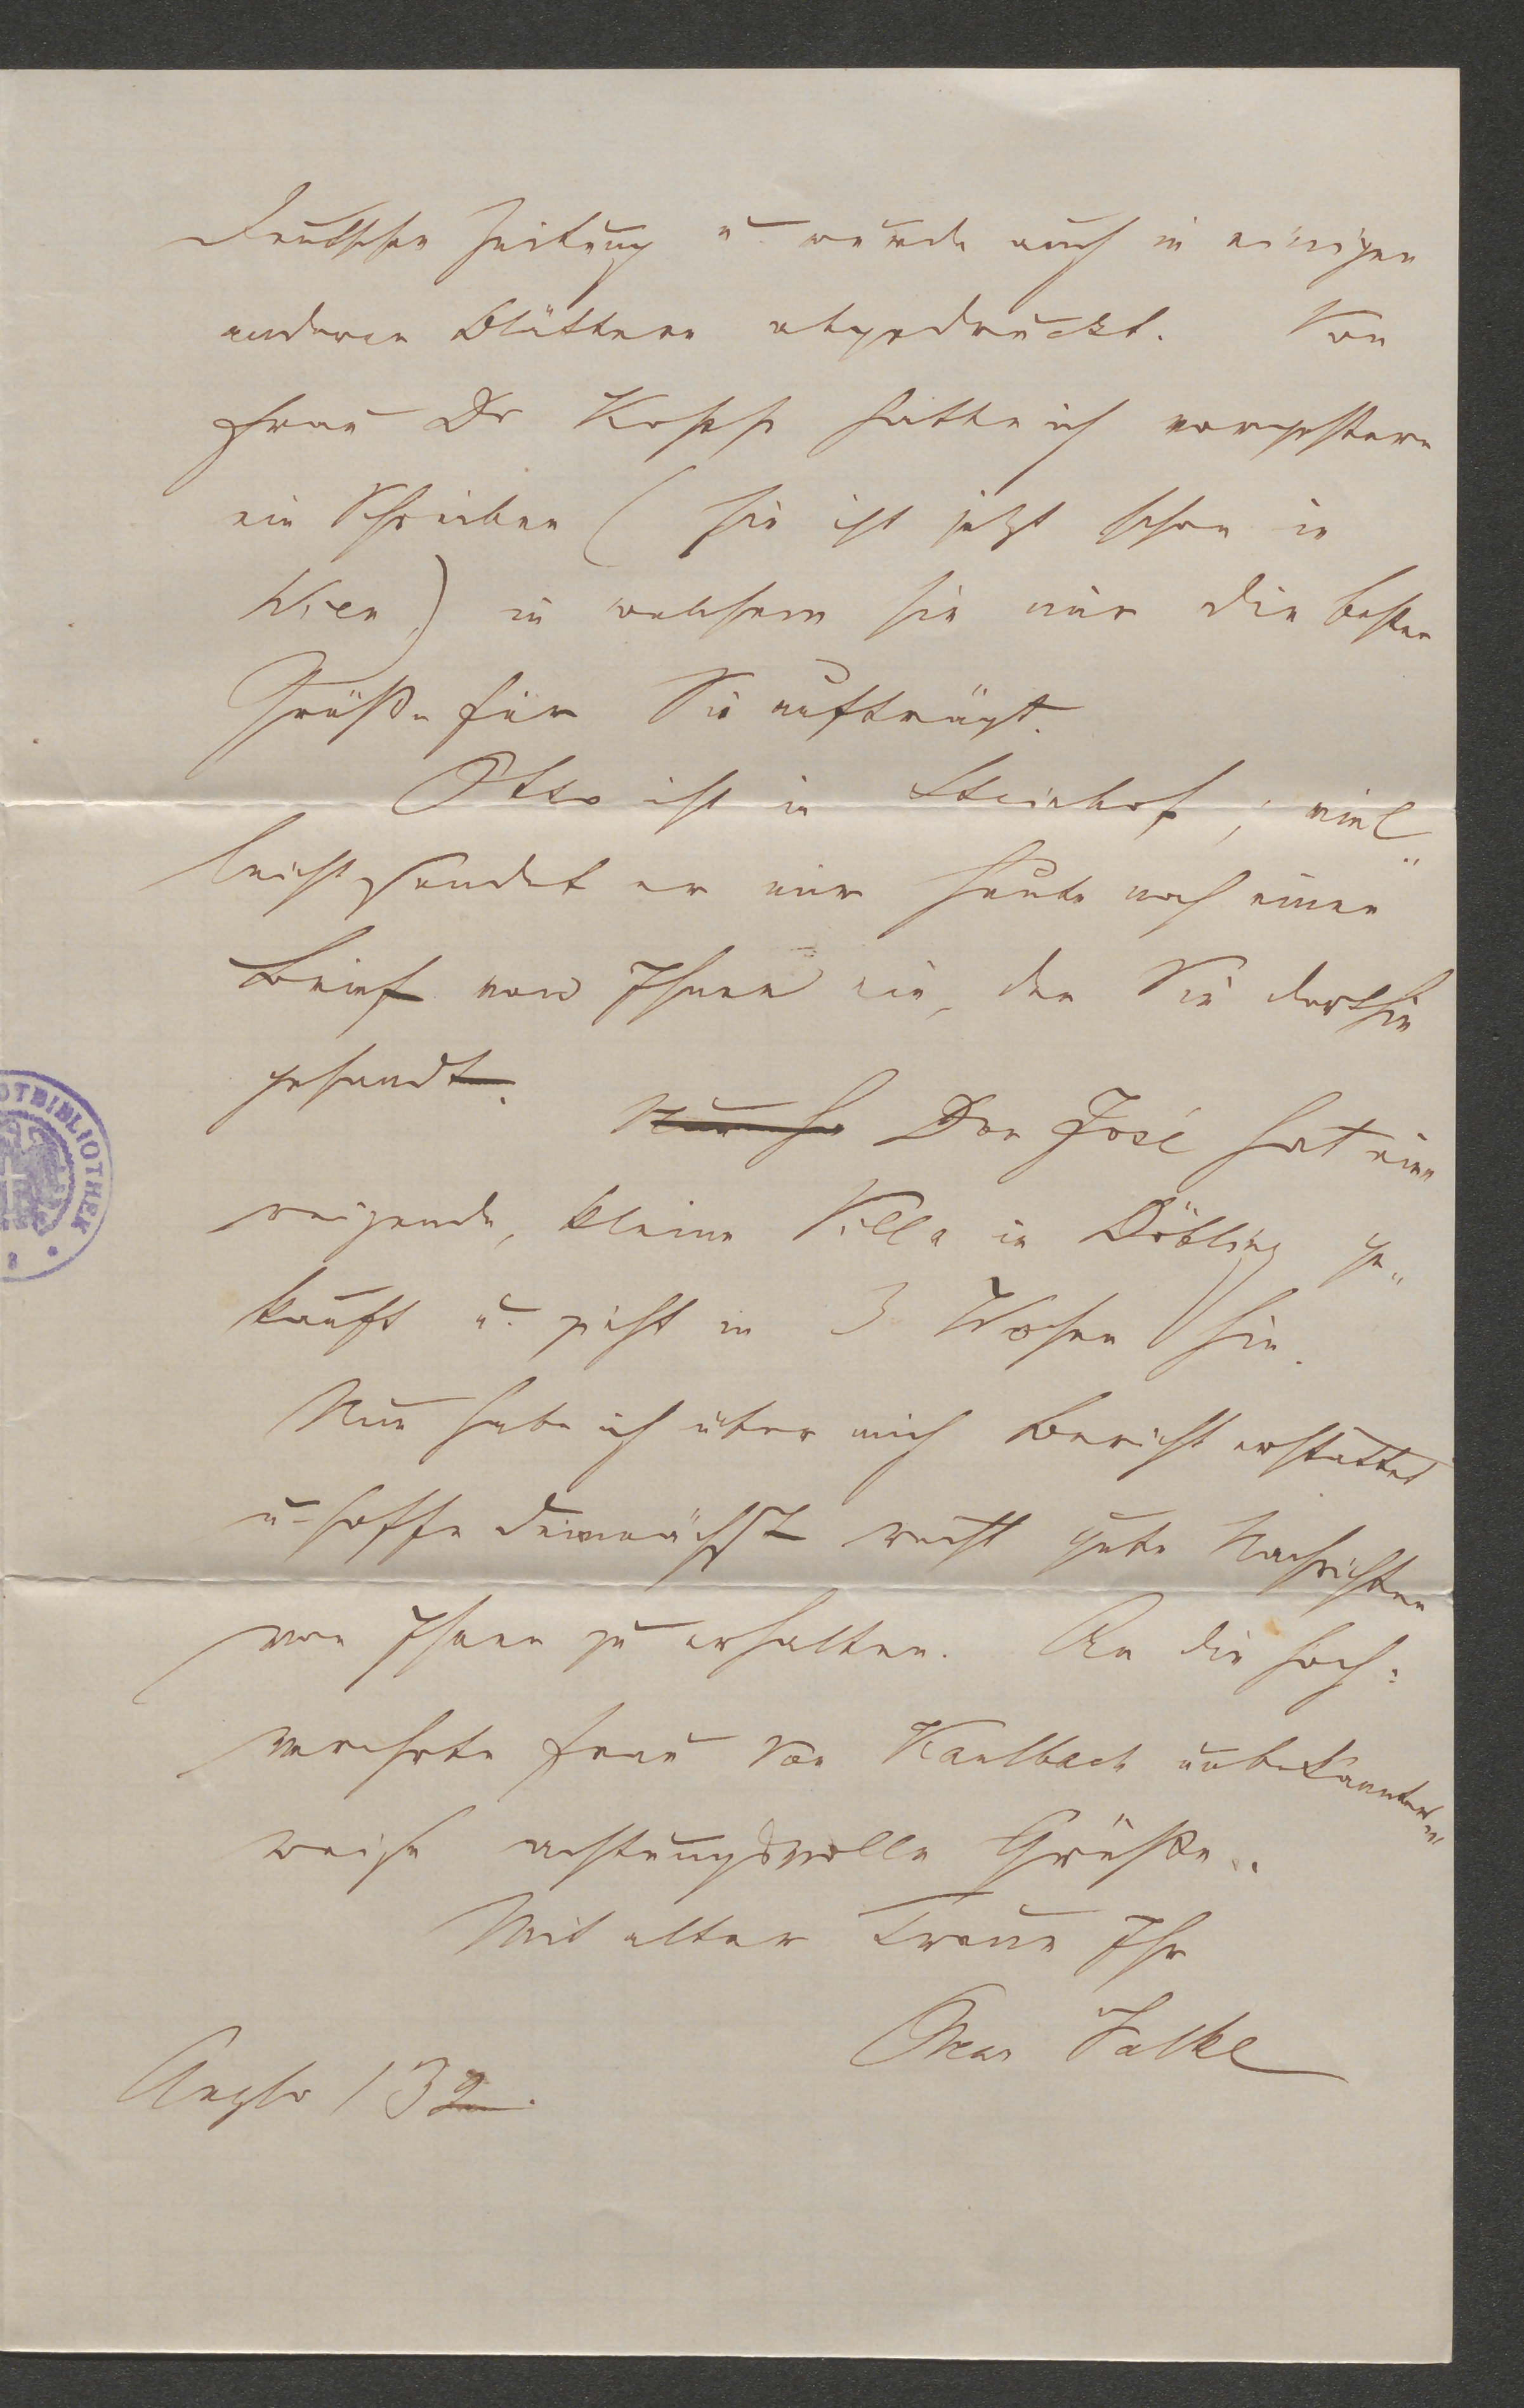 Deutsche Zeitung u. wurde auch in einigen
anderen Blättern abgedruckt. Von
Frau Dr Kopp hatte ich vorgestern
ein Schreiben (sie ist jetzt schon in
Wien) in welchem sie mir die besten
Grüße für Sie aufträgt.
Otto ist in Steinhof; viel„
leicht sendet er mir heute noch einen
Brief von Ihnen ein, den Sie dorthin
gesandt.
Don José hat eine
reizende, kleine Villa in Döbling ge„
kauft u. zieht in 3 Wochen hin.
Nun habe ich über mich Bericht erstattet
u. hoffe demnächst recht gute Nachrichten
von Ihnen zu erhalten. An die hoch=
verehrte Frau von Kaulbach unbekannter„
weise achtungsvolle Grüße.
Mit alter Treue Ihr
Oscar Falke
132.
OTBIBLIOTHEK